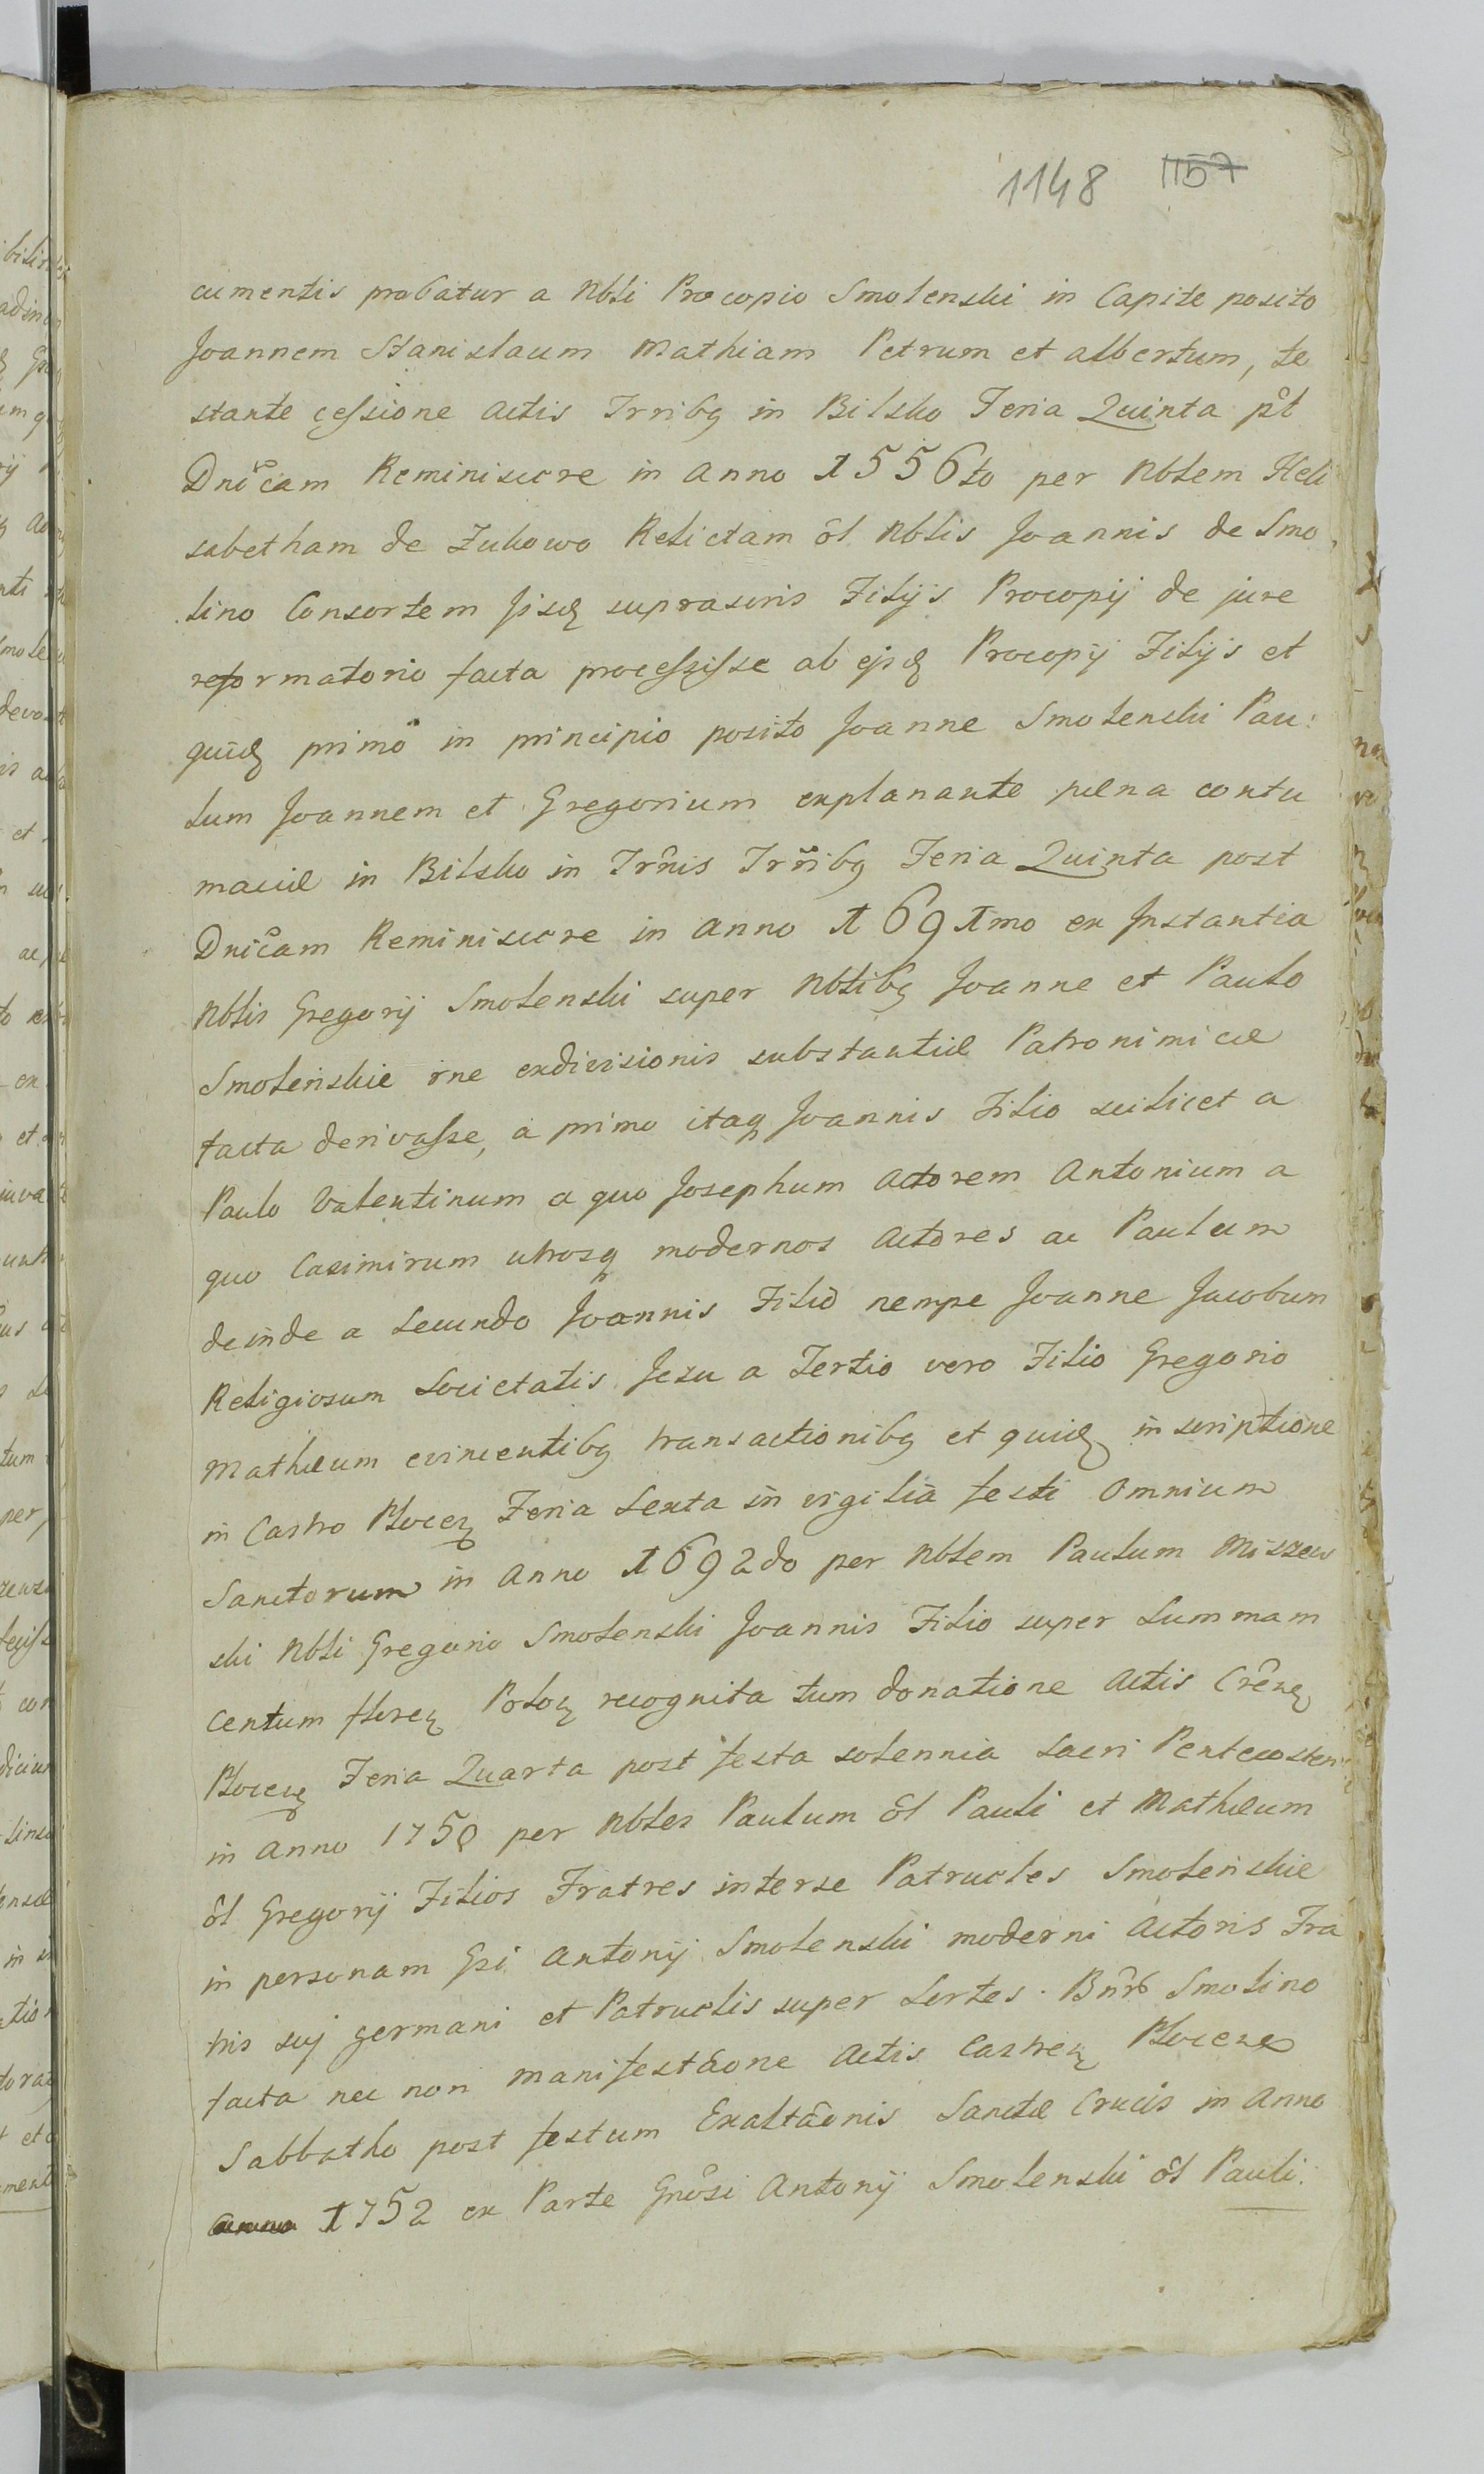 1148 1157
cumentis probatur a Nbli Procopio Smolenski in Capite posito
Joannem Stanislaum Mathiam Petrum et Albertum, te
stante cessione Actis Trribq in Bilsko Feria Quinta pt
Dnicam Reminiscere in Anno 1556to per Nblem Heli
sabetham de Zukowo Relictam ol Nblis Joannis de Smo
lino Consortem ijsq suprascris Filijs Procopij de jure
reformatorio facta processisse ab ejsq Procopij Filijs et
quidq primo in principio posito Joanne Smolenski Pau:
lum Joannem et Gregorium explanante pæna contu
maciæ in Bilsko in Trnis Trribq Feria Quinta post
Dnicam Reminiscere in Anno 1691mo ex Instantia
Nblis Gregorij Smolenski super Nblibq Joanne et Paulo
Smolenskie rne exdivisionis substantiæ Patronimicæ
facta derivasse, a primo itaq Joannis Filio scilicet a
Paulo Valentinum a quo Josephum Actorem Antonium a
quo Casimirum utrosq modernos Actores ac Paulum
deinde a Secundo Joannis Filio nempe Joanne Jacobum
Religiosum Societatis Jesu a Tertio vero Filio Gregorio
Mathæum evincentibq transactionibq et quidq inscriptione
in Castro Plocen Feria Sexta in vigilia festi Omnium
Sanctorum in Anno 1692do per Nblem Paulum Miszew
ski Nbli Gregorio Smolenski Joannis Filio super Summam
Centum floren Polon recognita tum donatione Actis Cren
Plocen Feria Quarta post festa solennia Sacri Pentecosten
in Anno 1750 per Nbles Paulum ol Pauli et Mathæum
ol Gregorij Filios Fratres interse Patrueles Smolenskie
in personam Gsi Antonij Smolenski moderni Actoris Fra
tris suj germani et Patruelis super Sortes Bnrb Smolino
facta nec non manifestaone Actis Castren Plocen
Sabbatho post festum Exaltaonis Sanctæ Crucis in Anno
anno 1752 ex Parte Gnosi Antonij Smolenski ol Pauli